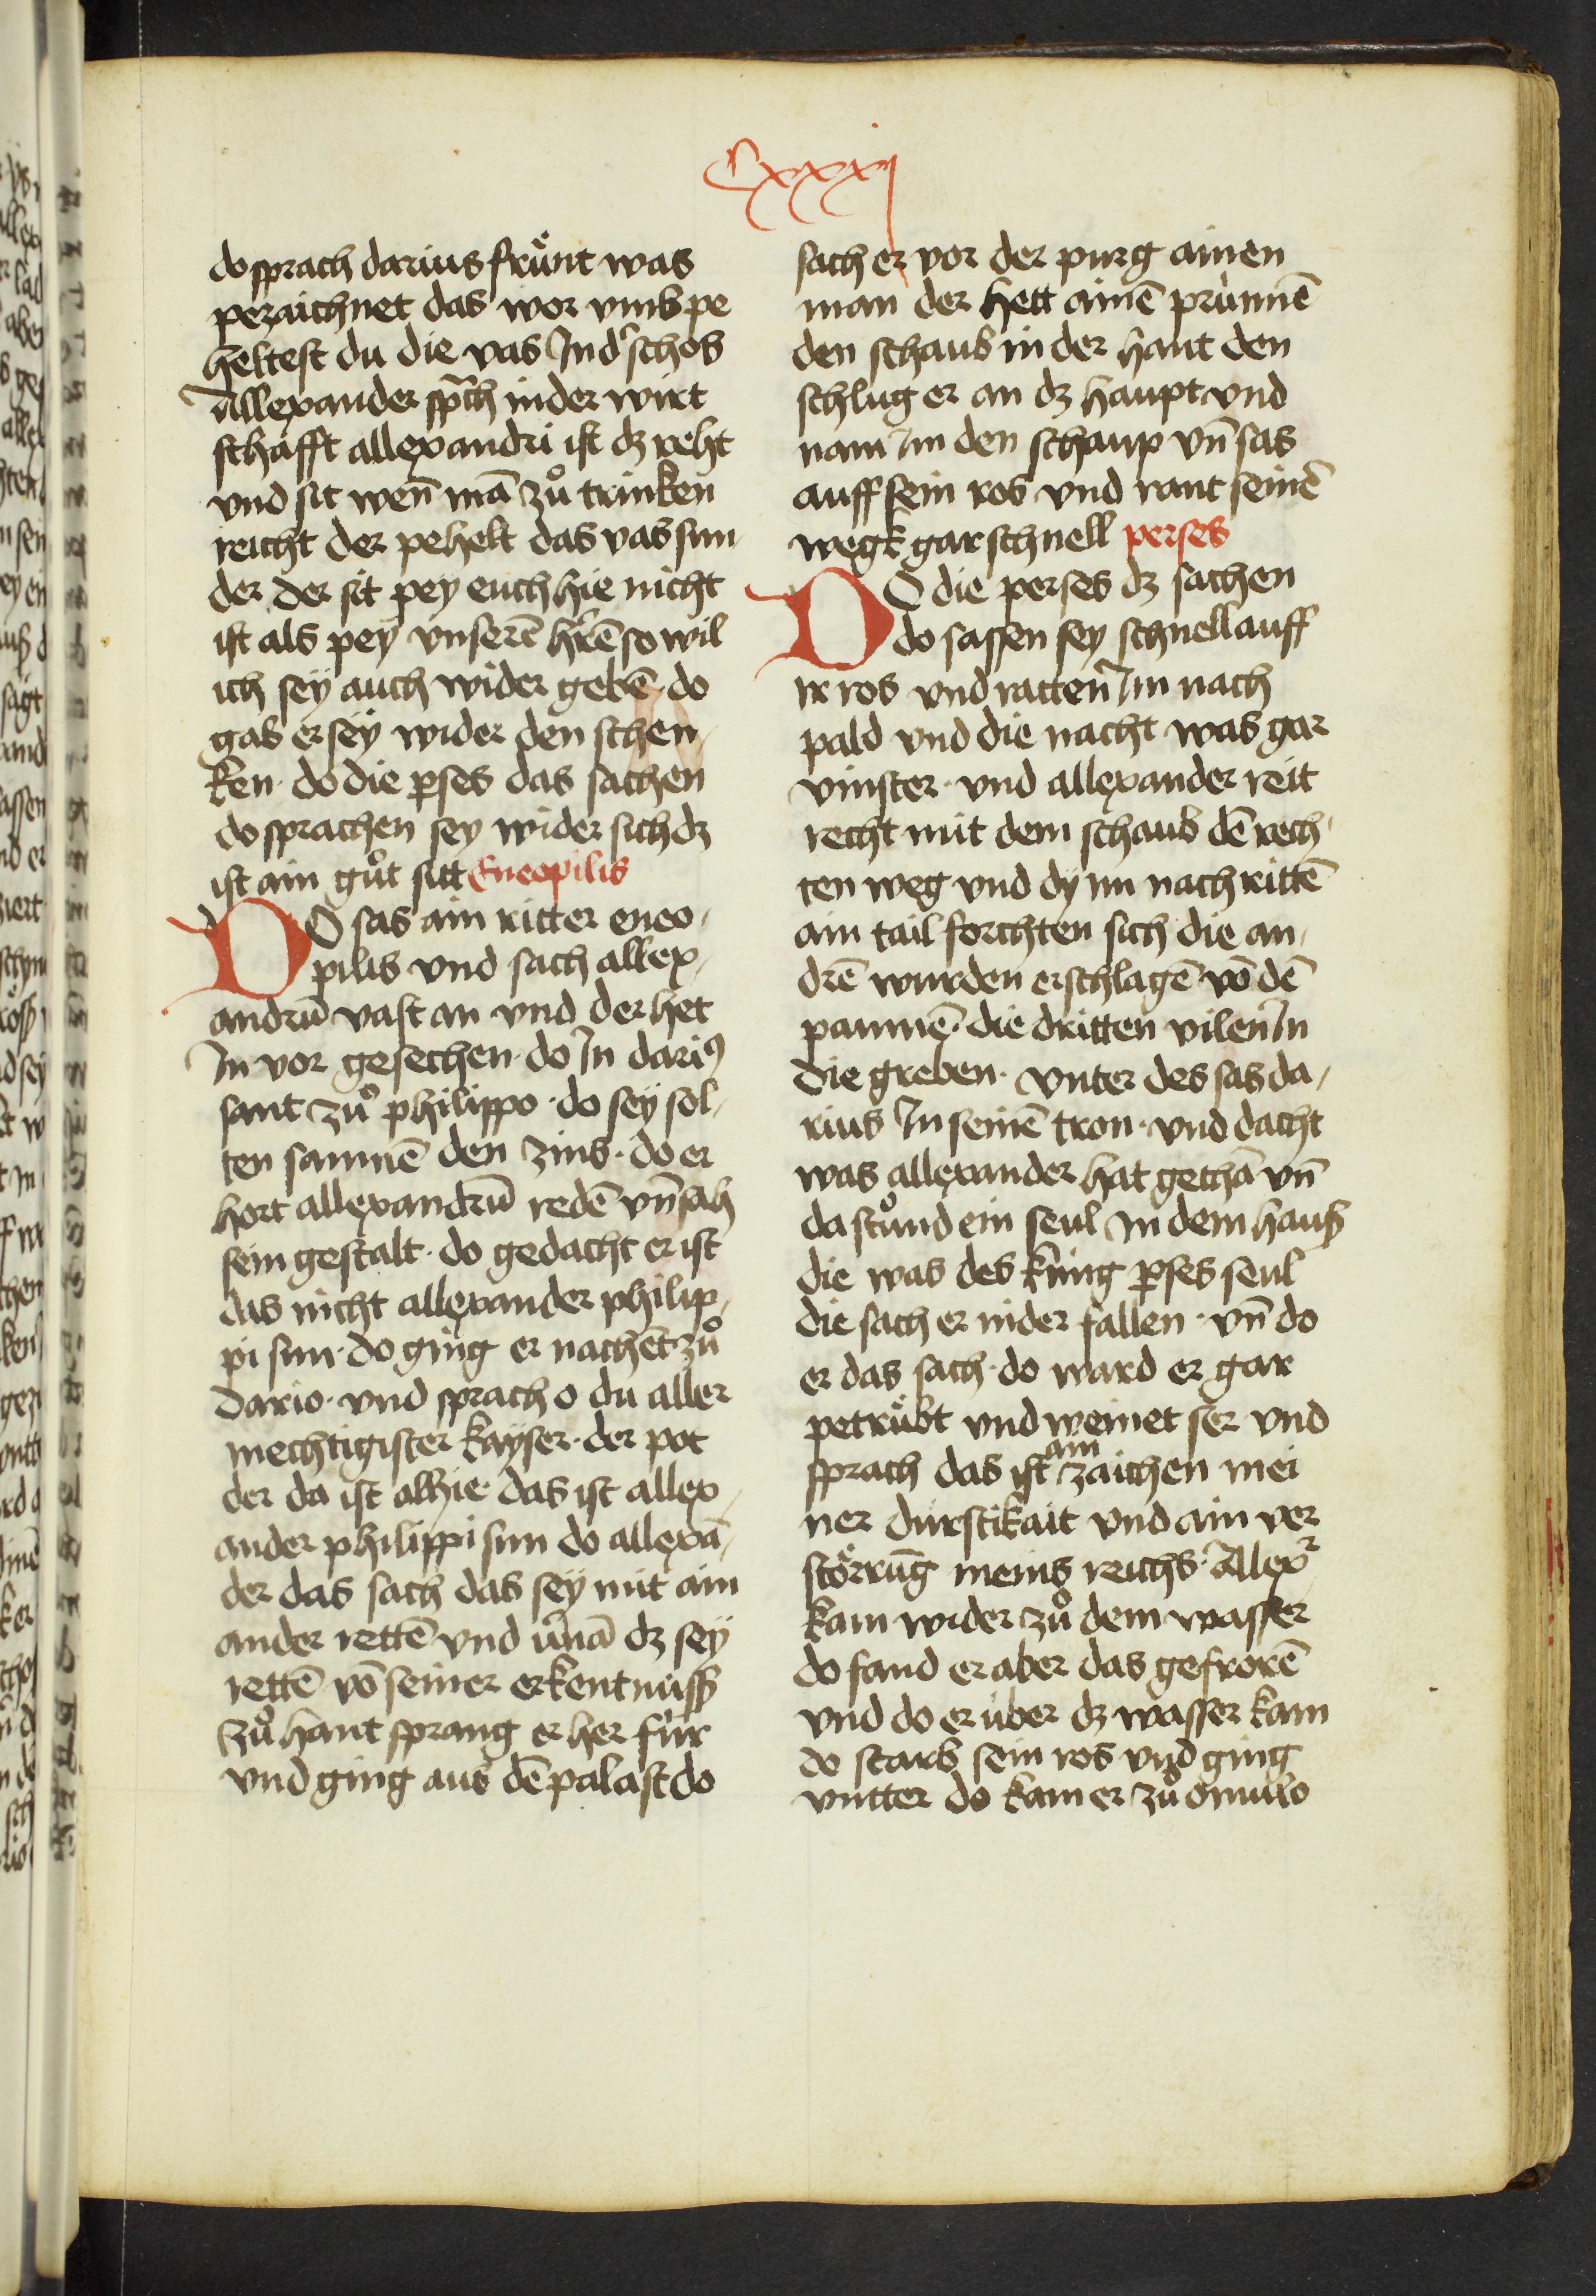 Cxxxj
do sprach darius frünt was
pezaichnet das wor vmb pe
heltest du die vas Jn dˀ schos
Allexander spͣch in der wirt
schafft allexandri ist dz reht
vnd sit wen̄ mā zů trinken
reicht der pehelt das vas sun
der der sit pey euch hie nicht
ist als pey vnserē hr̄ē so wil
ich sey auch wider gebē do
gab er sey wider den schen
ken· do die p̱ses das sachen
do sprachen sey wider sich dz
ist ain gůt sitt Eneopilis
DO sas ain ritter eneo
pilis vnd sach allex
andrū vast an vnd der het
Jn vor gesechen· do Jn dariꝰ
sant zů philippo· do sey sol
ten samnē den zins· do er
hort allexandrū redē vn̄ sah
sein gestalt· do gedacht er ist
das nicht allexander philip
pi sun· do ging er nachet zů
dario· vnd sprach o du aller
mechtigister kayser· der pot
der da ist alhie· das ist allex
ander philippi sun do allexā
der das sach das sey mit ain
ander rettē vnd v̄nā dz sey
rettē vō seiner erkentnuß
zů hant sprang er her für
vnd ging aus dē palast do
sach er vor der purg ainen
man der hett ainē prünnē
den schaub in der hant den
schlug er an dz haupt vnd
nam Jm den schaup vn̄ sas
auff sein ros vnd rant seinē
wegk gar schnell perses
DO die perses dz sachen
do sassen sey schnell auff
ir ros vnd ratten Jm nach
pald vnd die nacht was gar
vinster· vnd allexander reit
recht mit dem schaub dē rech
ten weg vnd dy im nach rittē
ain tail forchten sich die an
drē wurden erschlagē vō dē
paumē· die dritten vilen Jn
die greben· vnter des sas da
rius Jn seinē tron· vnd dacht
was allexander hat gethā vn̄
da stůnd ein seul Jn dem hauß
die was des küng p̱ses seul
die sach er nider fallen· vn̄ do
er das sach· do ward er gar
petrübt vnd weinet ser vnd
sprach das ist ain zaichen mei
ner durstikait vnd ain ver
störrūg meins reichs· Allexˀ
kam wider zů dem wasser
do fand er aber das gefrorē
vnd do er über dz wasser kam
do starb sein ros vnd ging
vntter do kam er zů Omulo